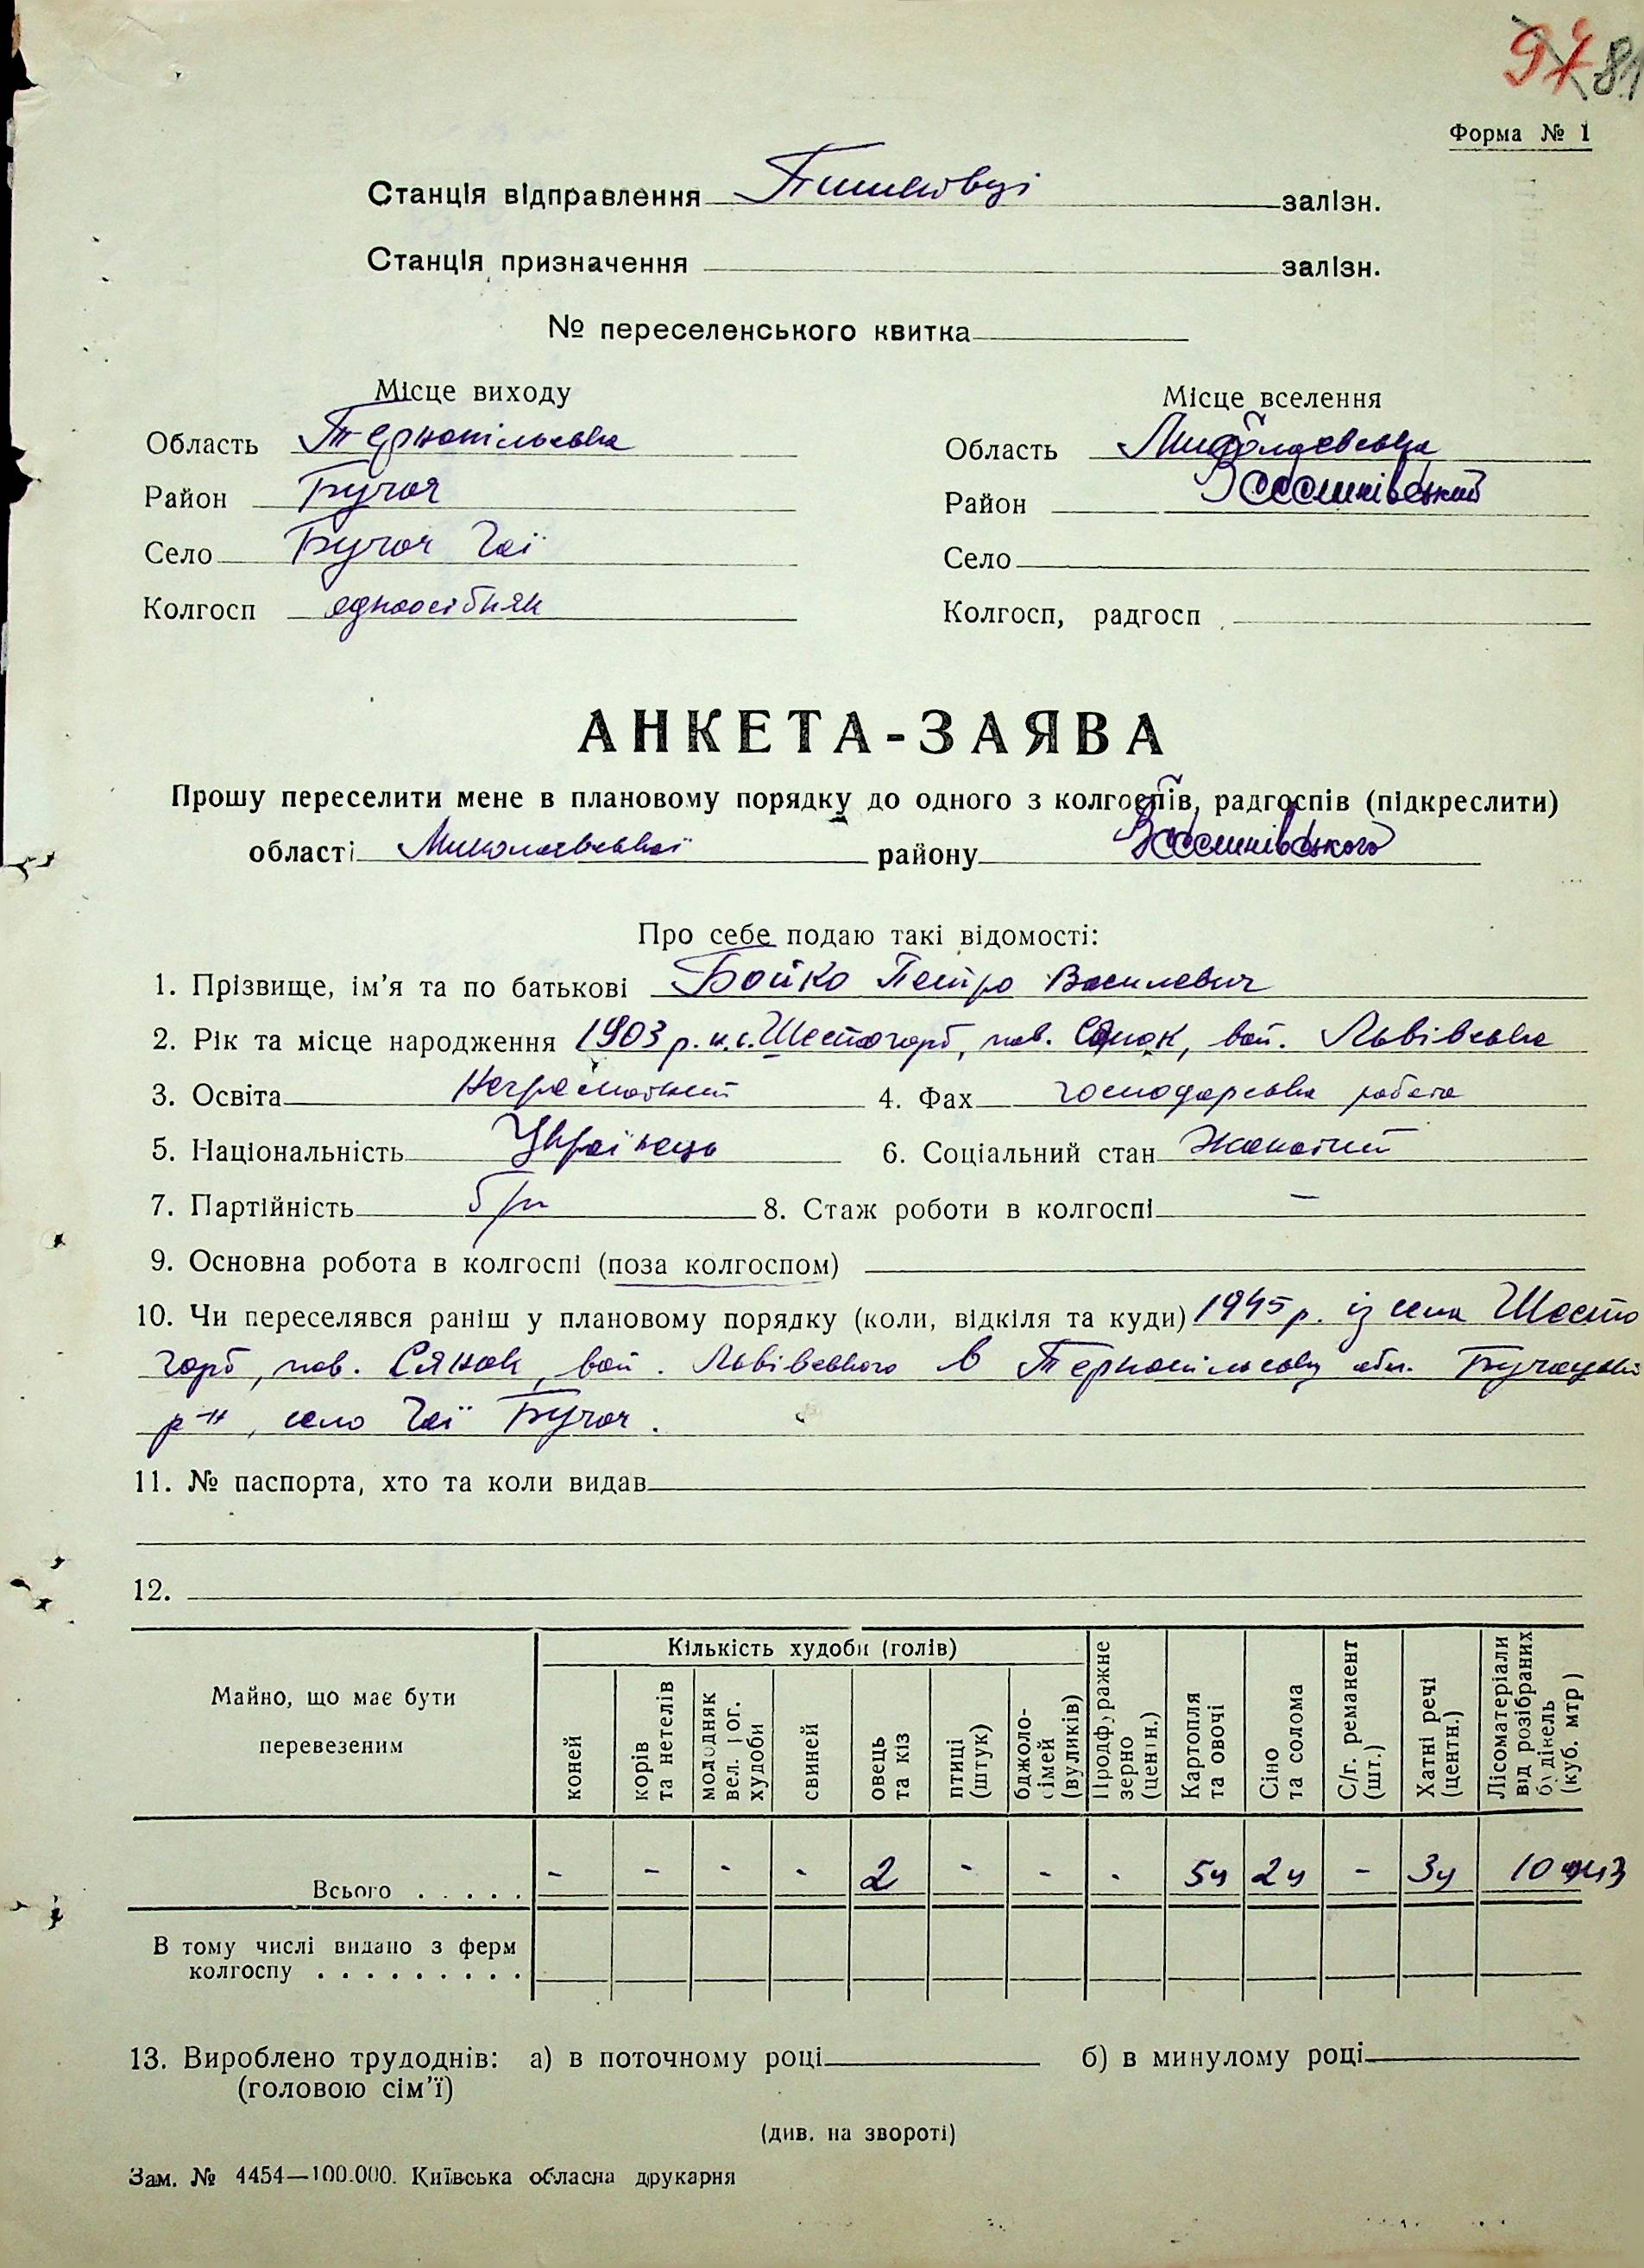 97 81
Форма № 1
Станція відправлення Пишківці залізн.
Станція призначення залізн.
№ переселенського квитка
Місце виходу Місце вселення
Область Тернопільська Область Миколаєвська
Район Бучач Район
Село Бучач Гаї Село
Колгосп одноосібняк Колгосп, радгосп
АНКЕТА-ЗАЯВА
Прошу переселити мене в плановому порядку до одного з колгоспів, радгоспів (підкреслити)
області Миколаєвської району
Про себе подаю такі відомості:
1. Прізвище, ім'я та по батькові Бойко Петро Васильевич
2. Рік та місце народження 1903 р. н. с. Шестогорб, пов. Сянок, вой. Львівська
3. Освіта Неграмотний 4. Фах господарська робота
5. Національність Українець 6. Соціальний стан Жонатий
7. Партійність б/п 8. Стаж роботи в колгоспі –
9. Основна робота в колгоспі (поза колгоспом)
10. Чи переселявся раніш у плановому порядку (коли, відкіля та куди) 1945 р. із села Шесто
горб, пов. Сянок, вой. Львівського в Тернопільську обл. Бучацький
р-н, село Гаї Бучач.
11. № паспорта, хто та коли видав
12.
Майно, що має бути перевезеним Кількість худоби (голів)
коней корів та нетелів молодняк вел. рог. худоби свиней овець та кіз птиці (штук) бджоло-сімей (вуликів) Продфуражне зерно (центн.) Картопля та овочі Сіно та солома С/г. реманент (шт.) Хатні речі (центн.) Лісоматеріали від розібраних будівель (куб. мтр)
Всього . . . . . - - - - 2 - - - 5ц 2ц - 3ц 10 м3
В тому числі видано з ферм
колгоспу . . . . . . . . .
13. Вироблено трудоднів: а) в поточному році б) в минулому році
(головою сім'ї)
(див. на звороті)
Зам. № 4454—100.000. Київська обласна друкарня